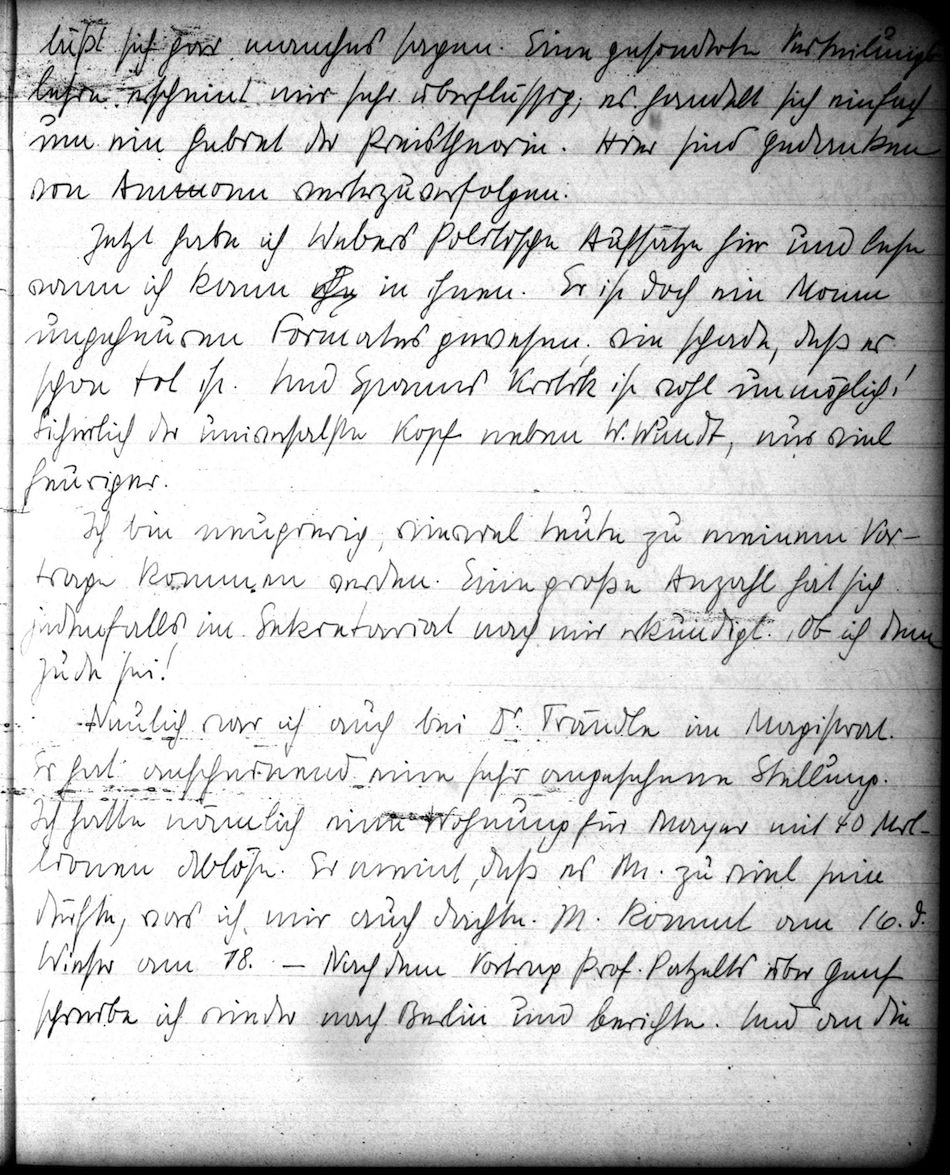 läßt sich gar manches sagen. Eine gesonderte Verteilungs-
lehre erscheint mir sehr überflüssig, es handelt sich einfach
um ein Gebiet der Preistheorie. Hier sind Gedanken
von Ammonn weiterzuverfolgen.
Jetzt habe ich Webers Politische Aufsätze hier und lese
wann ich kann in ihnen. Er ist doch ein Mann
ungeheuren Formates gewesen, wie schade, daß er
schon tot ist. Und Spanns Kritik ist wohl unmöglich!
Sicherlich der universalste Kopf neben W. Wundt, nur viel
feuriger.
Ich bin neugierig, wieviel heute zu meinem Vor-
trage kommen werden. Eine große Anzahl hat sich
jedenfalls im Sekretariat nach mir erkundigt. Ob ich denn
Jude sei!
Neulich war ich auch bei Dr. Trändle im Magistrat.
Er hat anscheinend eine sehr angesehene Stellung.
Ich hatte nämlich eine Wohnung für Mayer mit 40 Mil-
lionen Ablöse. Er meint, daß es M. zu viel sein
dürfte, was ich mir auch dachte. M. kommt am 16. d.
Wieser am 18. — Nach dem Vortrag Prof. Patzelts über Genf
schreibe ich wieder nach Berlin und berichte. Und an die